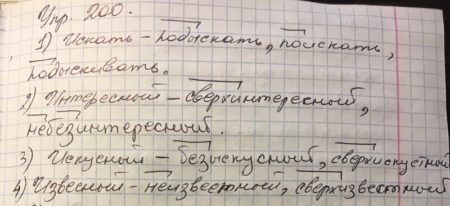 Упр. 200.
1) Искать – подыскать, поискать,
подыскивать.
2) Интересный – сверхинтересный,
небезинтересный.
3) Искусный – безыскусный, сверхискустный
4) Извесный – неизвестный, сверхизвестный